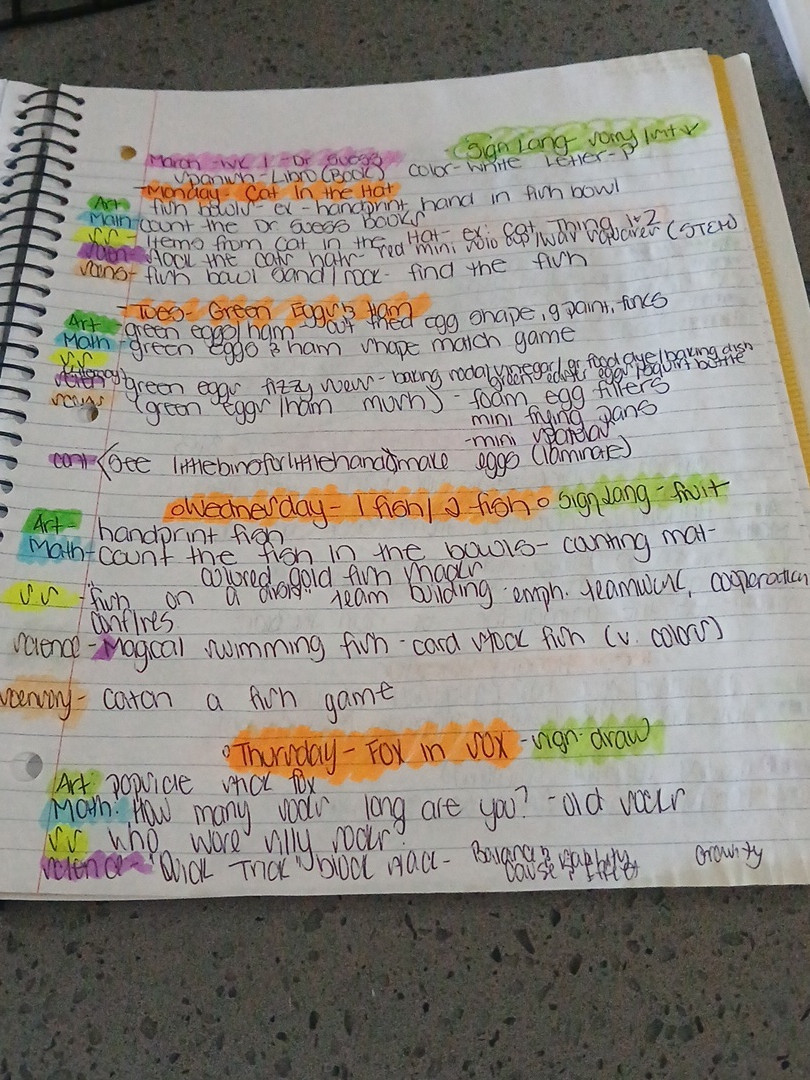 Sign Lang-
March - WK 1 - Dr Suess
Spanish - Libro (Book) Color - White Letter - P
- Monday - Cat In the Hat
Art - fish bowls - ex - handprint hand in fish bowl
Math - Count the Dr Suess books
SS - Items from Cat in the Hat - ex: Cat, Thing 1+2
Stack the cats hats - red mini solo cup / (STEM)
Sens - fish bowl sand / rock - find the fish
- Tues - Green Eggs & Ham
Art - green eggs/ham - out fried egg shape, g paint, forks
Math - green eggs & ham shape match game
SS
green eggs fizzy - baking soda/vinegar/ gr food dye/baking dish
green eggs squirt bottle
(green eggs/ham mush) - foam egg fillers
mini frying pans
- mini spatulas
cont < See littlebinsforlittlehands/make eggs (laminate)
Wednesday - 1 fish / 2 fish Sign Lang - fruit
Art - handprint fish
Math - Count the fish in the bowls - counting mat -
colored gold fish snacks
SS - "fish on a team building - emph. teamwork, cooperation
Science - Magical swimming fish - card stock fish (v. colors)
sensory - catch a fish game
Thursday - Fox in Sox - sign: draw
Art: popsicle stick fox
Math: How many socks long are you? - old socks
SS who wore silly socks?
science - "Quick Trick" block stack - Balance & Gravity
cause & effect